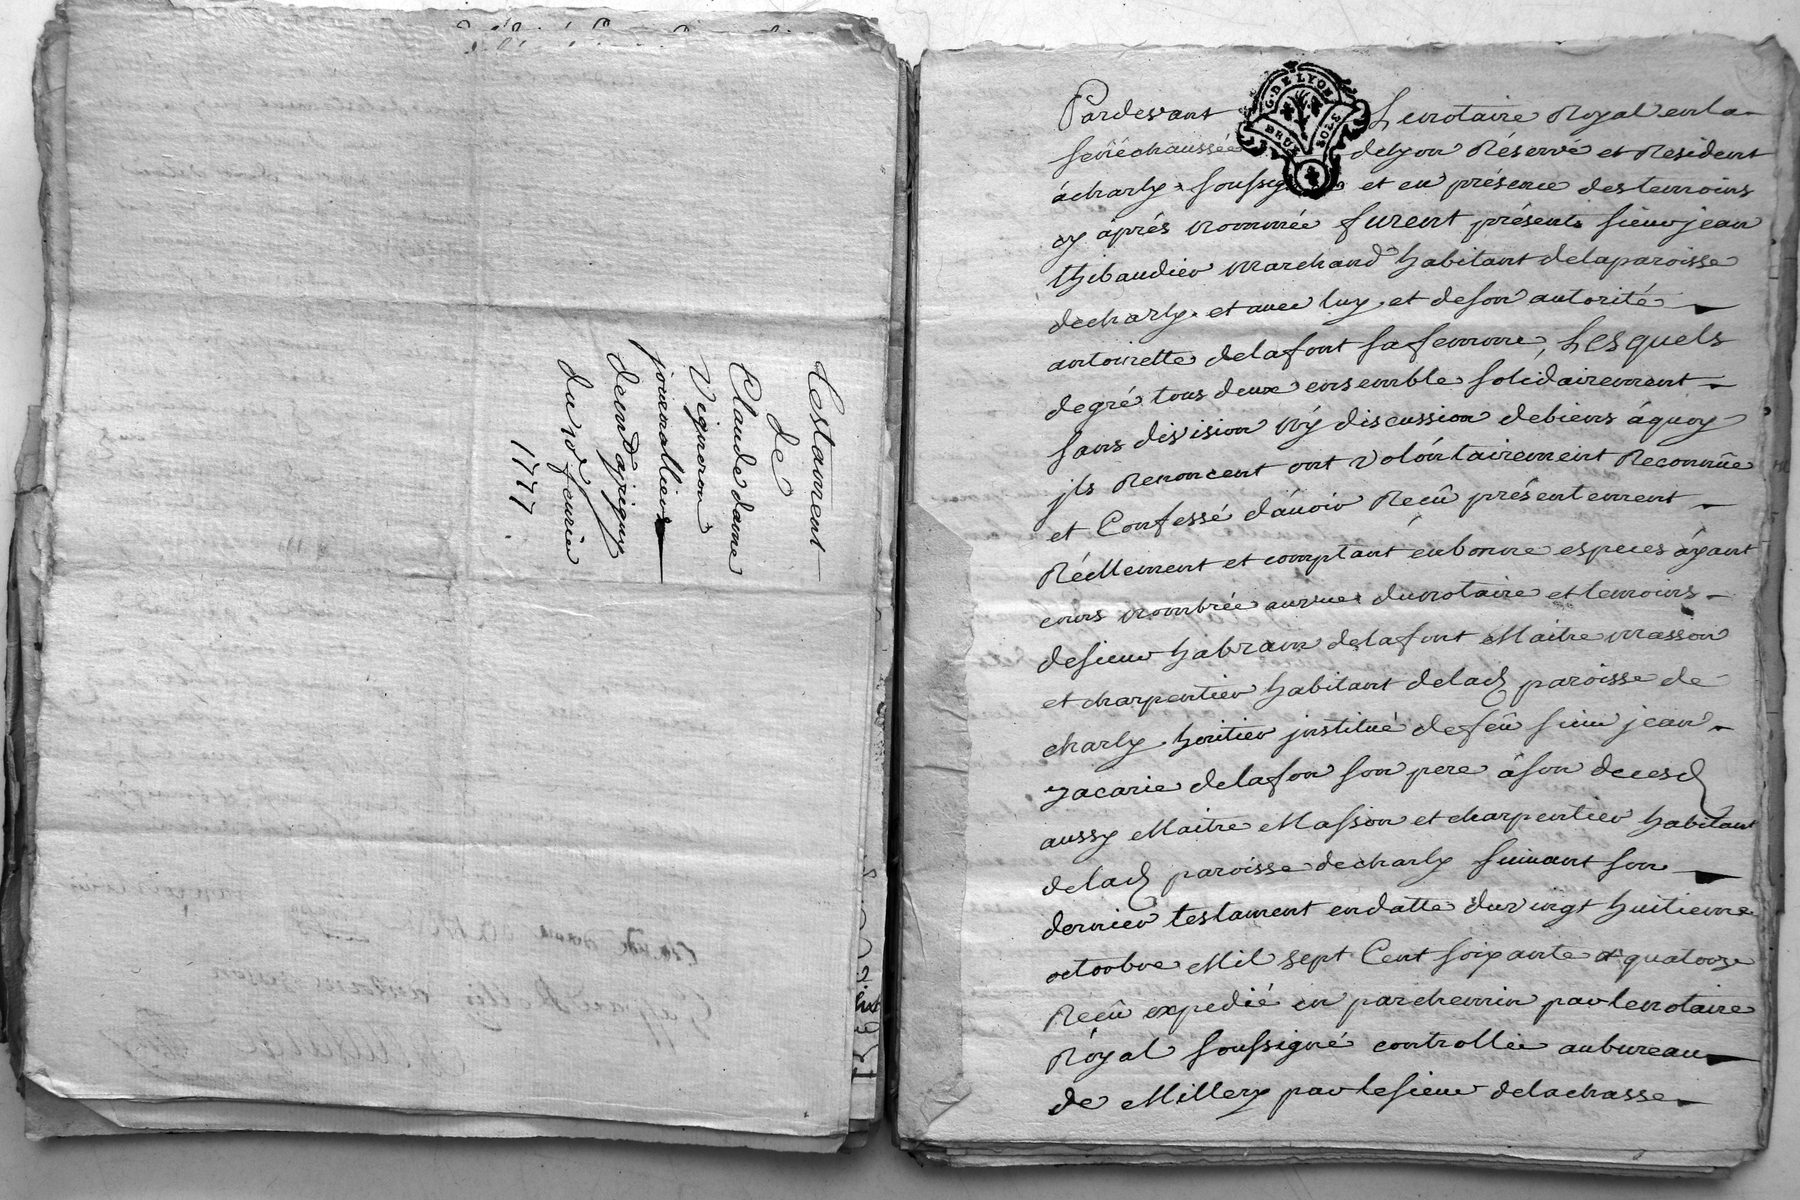 Testament
de
Claude dame
Vigneron
journallier
de
du 10e feurier
1777.
G. DE LYON
DEUX SOLS
Pardevant Le notaire Royal en la
senéchaussée de Lyon Réservé et Resident
á charly soussigné et en présence des temoins
cy aprés nommée furent présents sieur jean
thibaudier marchand habitant de la paroisse
de charly et avec luy et de son autorité
antoinette delafont sa femme, Lesquels
de gré tous deux ensemble solidairement
sans division ny discussion de biens á quoy
jls Renoncent ont volontairement Reconnüe
et Confessé d'avoir Reçû présentement
Réellement et comptant en bonne especes áyant
cours nombrée aux vues du notaire et temoins
de sieur habram delafont Maitre masson
et charpentier habitant de lad paroisse de
charly heritier jnstitué de feû sieur jean
zacarie delafon son pere á son deces
aussy Maitre Masson et charpentier habitant
de lad paroisse de charly suivant son
dernier testament en datte du vingt huitieme
octobre Mil sept Cent soixante et quatorze
Reçû expedié en parchemin par le notaire
Róyal soussigné controllée au bureau
de Millery par le sieur delachasse